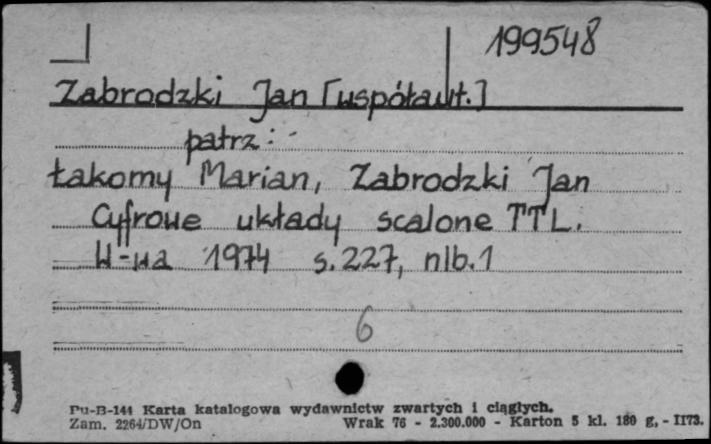 199548
Zabrodzki Jan [współaut.]
patrz:
Łakomy Marian, Zabrodzki Jan
Cyfrowe układy scalone TTL.
W-wa 1974 s.227, nlb.1
6
Pu-B-144 Karta katalogowa wydawnictw zwartych i ciągłych.
Zam. 2264/DW/On Wrak 76 - 2.300.000 - Karton 5 kl. 180 g, - II73.